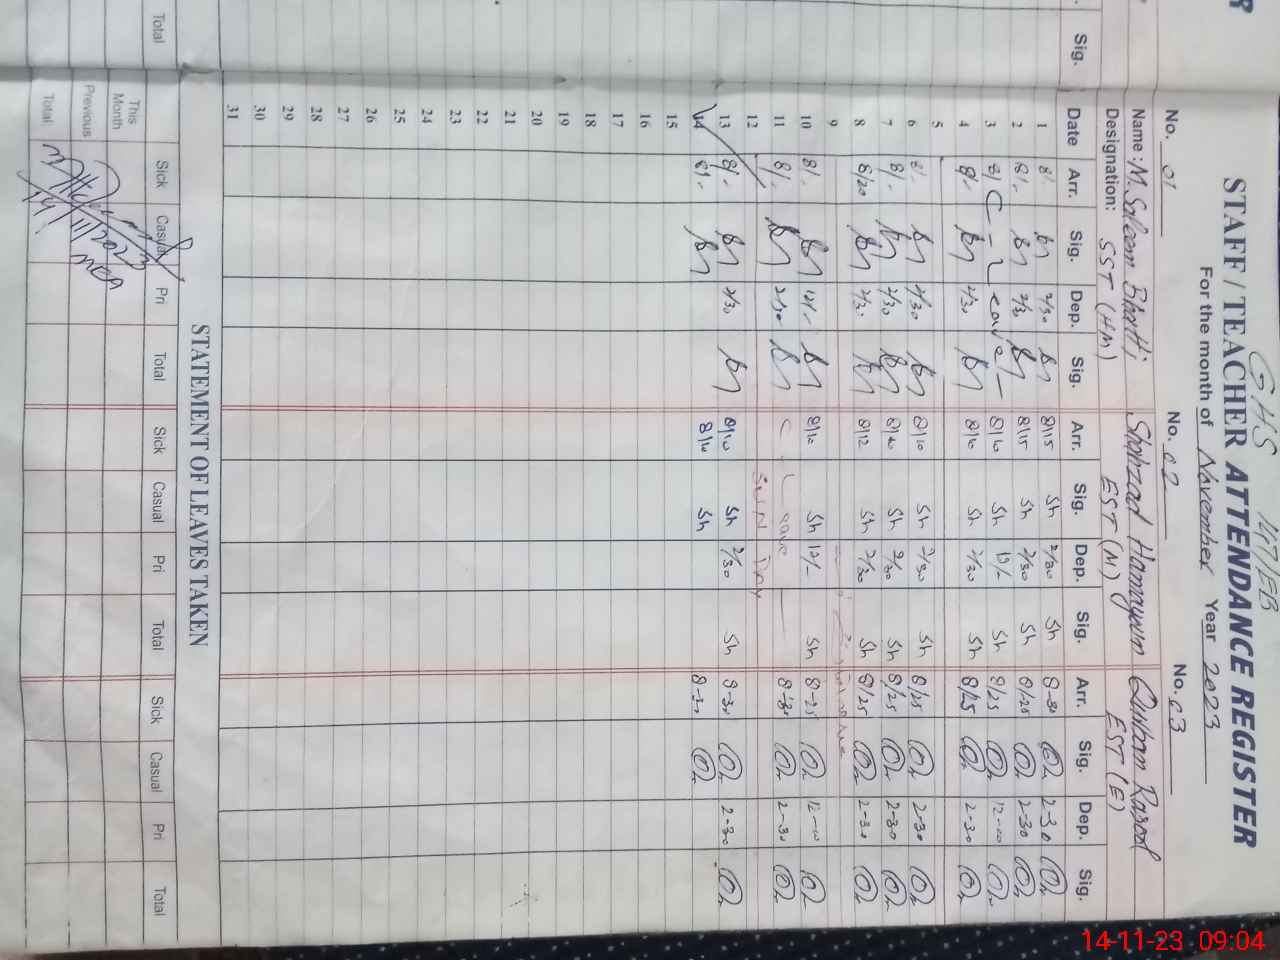 GHS 117/EB
STAFF / TEACHER ATTENDANCE REGISTER
For the month of November Year 2023
No. 01 No. 02 No. 03
Name: M. Saleem Bhatti Shahzad Hamayoun Qurban Rasool
Designation: SST (HM) EST (M) EST (E)
Date Arr. Sig. Dep. Sig. Arr. Sig. Dep. Sig. Arr. Sig. Dep. Sig.
1 8/- 2/30 8/15 Sh 2/30 Sh 8-30 2-30
2 8/- 2/30 8/15 Sh 2/30 Sh 8/25 2-30
3 C - Leave - 8/10 Sh 12/- Sh 8/25 12-00
4 8/- 2/30 8/10 Sh 2/30 Sh 8/25 2-30
5
6 8/- 2/30 8/10 Sh 2/30 Sh 8/25 2-30
7 8/- 2/30 8/10 Sh 2/30 Sh 8/25 2-30
8 8/20 2/30 8/12 Sh 2/30 Sh 8/25 2-30
9
10 8/- 12/- 8/10 Sh 12/- Sh 8-25 12-00
11 8/- 2/30 C Leave 8-30 2-30
12 SUN DAY
13 8/- 2/30 8/10 Sh 2/30 Sh 8-30 2-30
14 8/- 8/10 Sh 8-30
15
16
17
18
19
20
21
22
23
24
25
26
27
28
29
30
31
STATEMENT OF LEAVES TAKEN
Sick Casual Pri Total Sick Casual Pri Total Sick Casual Pri Total
This Month
Previous
Total
Sig.
Total
14-11-23 09:04